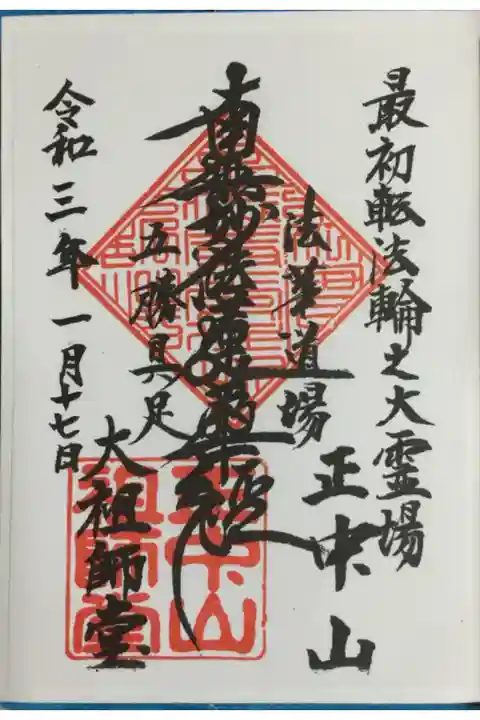 最初転法輪之大霊場
正中山
法華道場
南無妙法蓮華経
五勝具足
大祖師堂
令和三年一月十七日
正中山
祖師堂